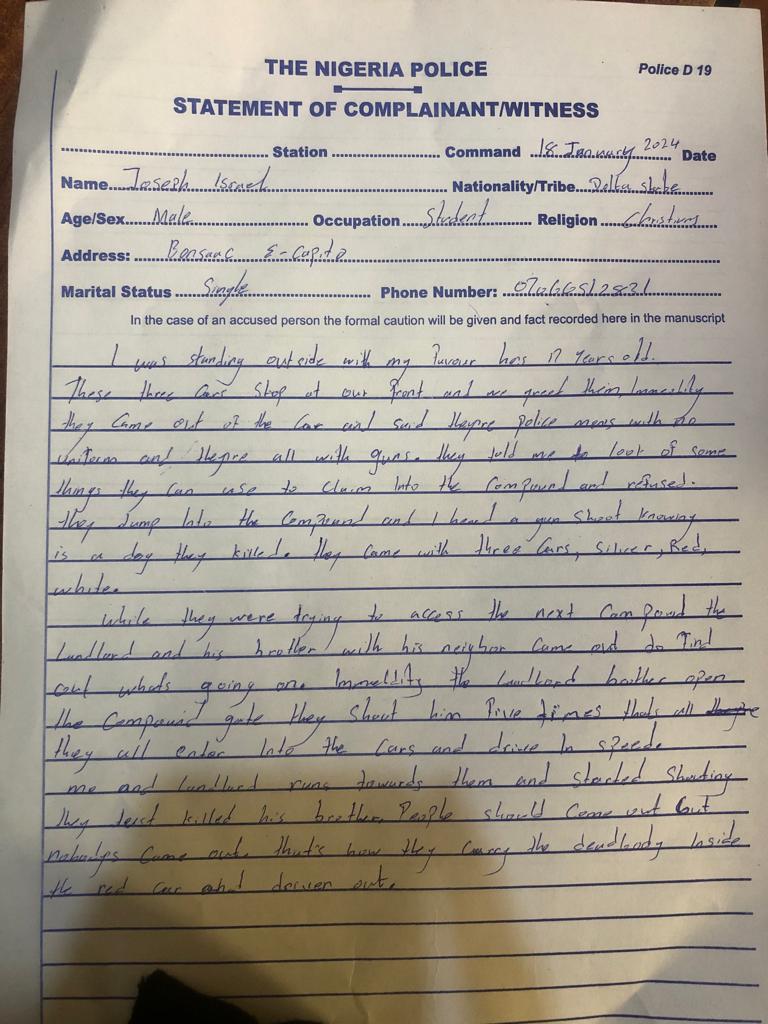 THE NIGERIA POLICE
Police D 19
STATEMENT OF COMPLAINANT/WITNESS
.................... Station .................... Command 18 January 2024 Date
Name Joseph Israel Nationality/Tribe Delta state
Age/Sex Male Occupation Student Religion Christian
Address: E-Capito
Marital Status Single Phone Number:
In the case of an accused person the formal caution will be given and fact recorded here in the manuscript
I was standing outside with my Favour hes 17 years old.
These three Cars stop at our front and we greet them, Immeditly
they came out of the Car and said theyre police mens with no
uniform and theyre all with guns. they told me to look of some
things they can use to climb Into the Compound and refused.
they Jump Into the Compound and I heard a gun shoot knowing
is a dog they killed. they came with three Cars, silver, Red,
white.
While they were trying to access the next Compound the
Landlord and his brother with his neighbor came out to find
out whats going on. Immeditly the Landlord brother open
the Compound gate they shout him five times thats all
they all enter Into the Cars and drive In speed.
me and landlord runs towards them and started shouting
they just killed his brother. People should come out but
nobodys came out. that's how they carry the deadbody Inside
the red car and out.